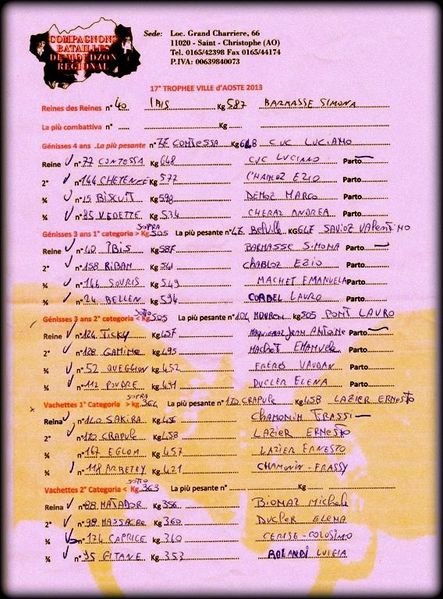 COMPAGNONS
BATAILLES
DE MOUDZON
REGIONAL
Sede: Loc. Grand Charriere, 66
11020 - Saint - Christophe (AO)
Tel. 0165/42398 Fax 0165/44174
P.IVA: 00639840073
17° TROPHEE VILLE d'AOSTE 2013
Reines des Reines n° 40 IBIS Kg 587 BARMASSE SIMONA
La più combattiva n°
Génisses 4 ans La più pesante n° 77 CONTESSA Kg 648 CUC LUCIANO
Reine 77 CONTESSA Kg 648 CUC LUCIANO Parto
2° 144 Kg 577 CHABLOZ EZIO Parto
¾ 15 BISCUIT Kg 598 DEMOZ MARCO Parto
¾ 35 VEDETTE Kg 534 CHERAZ ANDREA Parto
Génisses 3 ans 1° categoria > SOPRA Kg 505 La più pesante n° 47 Kg 647 SAVIOZ VALENTINO
Reine n° 40 IBIS Kg 587 BARMASSE SIMONA Parto
2° 158 RIBAN Kg 561 CHABLOZ EZIO Parto
¾ 146 SOURIS Kg 549 MACHET EMANUELA Parto
¾ 24 BELLEN Kg 594 LAURO Parto
Génisses 3 ans 2° categoria < SOTTO Kg 505 La più pesante n° 104 Kg 505 PONT LAURO
Reina 124 TISKY Kg 457 Parto
2° 128 GAMINE Kg 495 MACHET EMANUELA Parto
¾ 52 Kg 452 FRERES VAUDAN Parto
¾ 112 POUDRE Kg 491 DUCLER ELENA Parto
Vachettes 1° Categoria > SOPRA Kg 364 La più pesante n° 120 CRAPULE Kg 458 LAZIER ERNESTO
Reina 140 SAKIRA Kg 456 CHAMONIN FRASSI
2° 120 CRAPULE Kg 458 LAZIER ERNESTO
¾ 167 EGLON Kg 457 LAZIER ERNESTO
¾ 118 Kg 421 CHAMONIN - FRASSY
Vachettes 2° Categoria < SOTTO Kg 363 La più pesante n° Kg
Reina n° 88 MATADOR Kg 356 BIONAZ Michele
2° n° 99 MASSACRE Kg 360 DUCLER ELENA
¾ n° 124 CAPRICE Kg 360 CERISE - COLOSIMO
¾ n° 75 GITANE Kg 353 ROLANDI LUIGIA